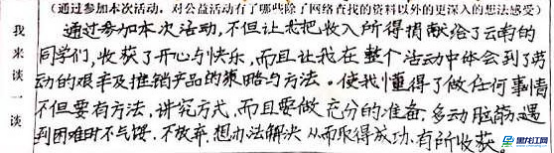 (通过参加本次活动，对公益活动有了哪些除了网络查找的资料以外的更深入的想法感受)
我来谈一谈
通过参加本次活动，不但让我把收入所得捐献给了云南的
同学们，收获了开心与快乐，而且让我在整个活动中体会到了劳
动的艰辛及推销产品的策略与方法。使我懂得了做任何事情
不但要有方法，讲究方式，而且要做充分的准备，多动脑筋，遇
到困难时不气馁，不放弃，想办法解决，从而取得成功，有所收获。
黑龙江网